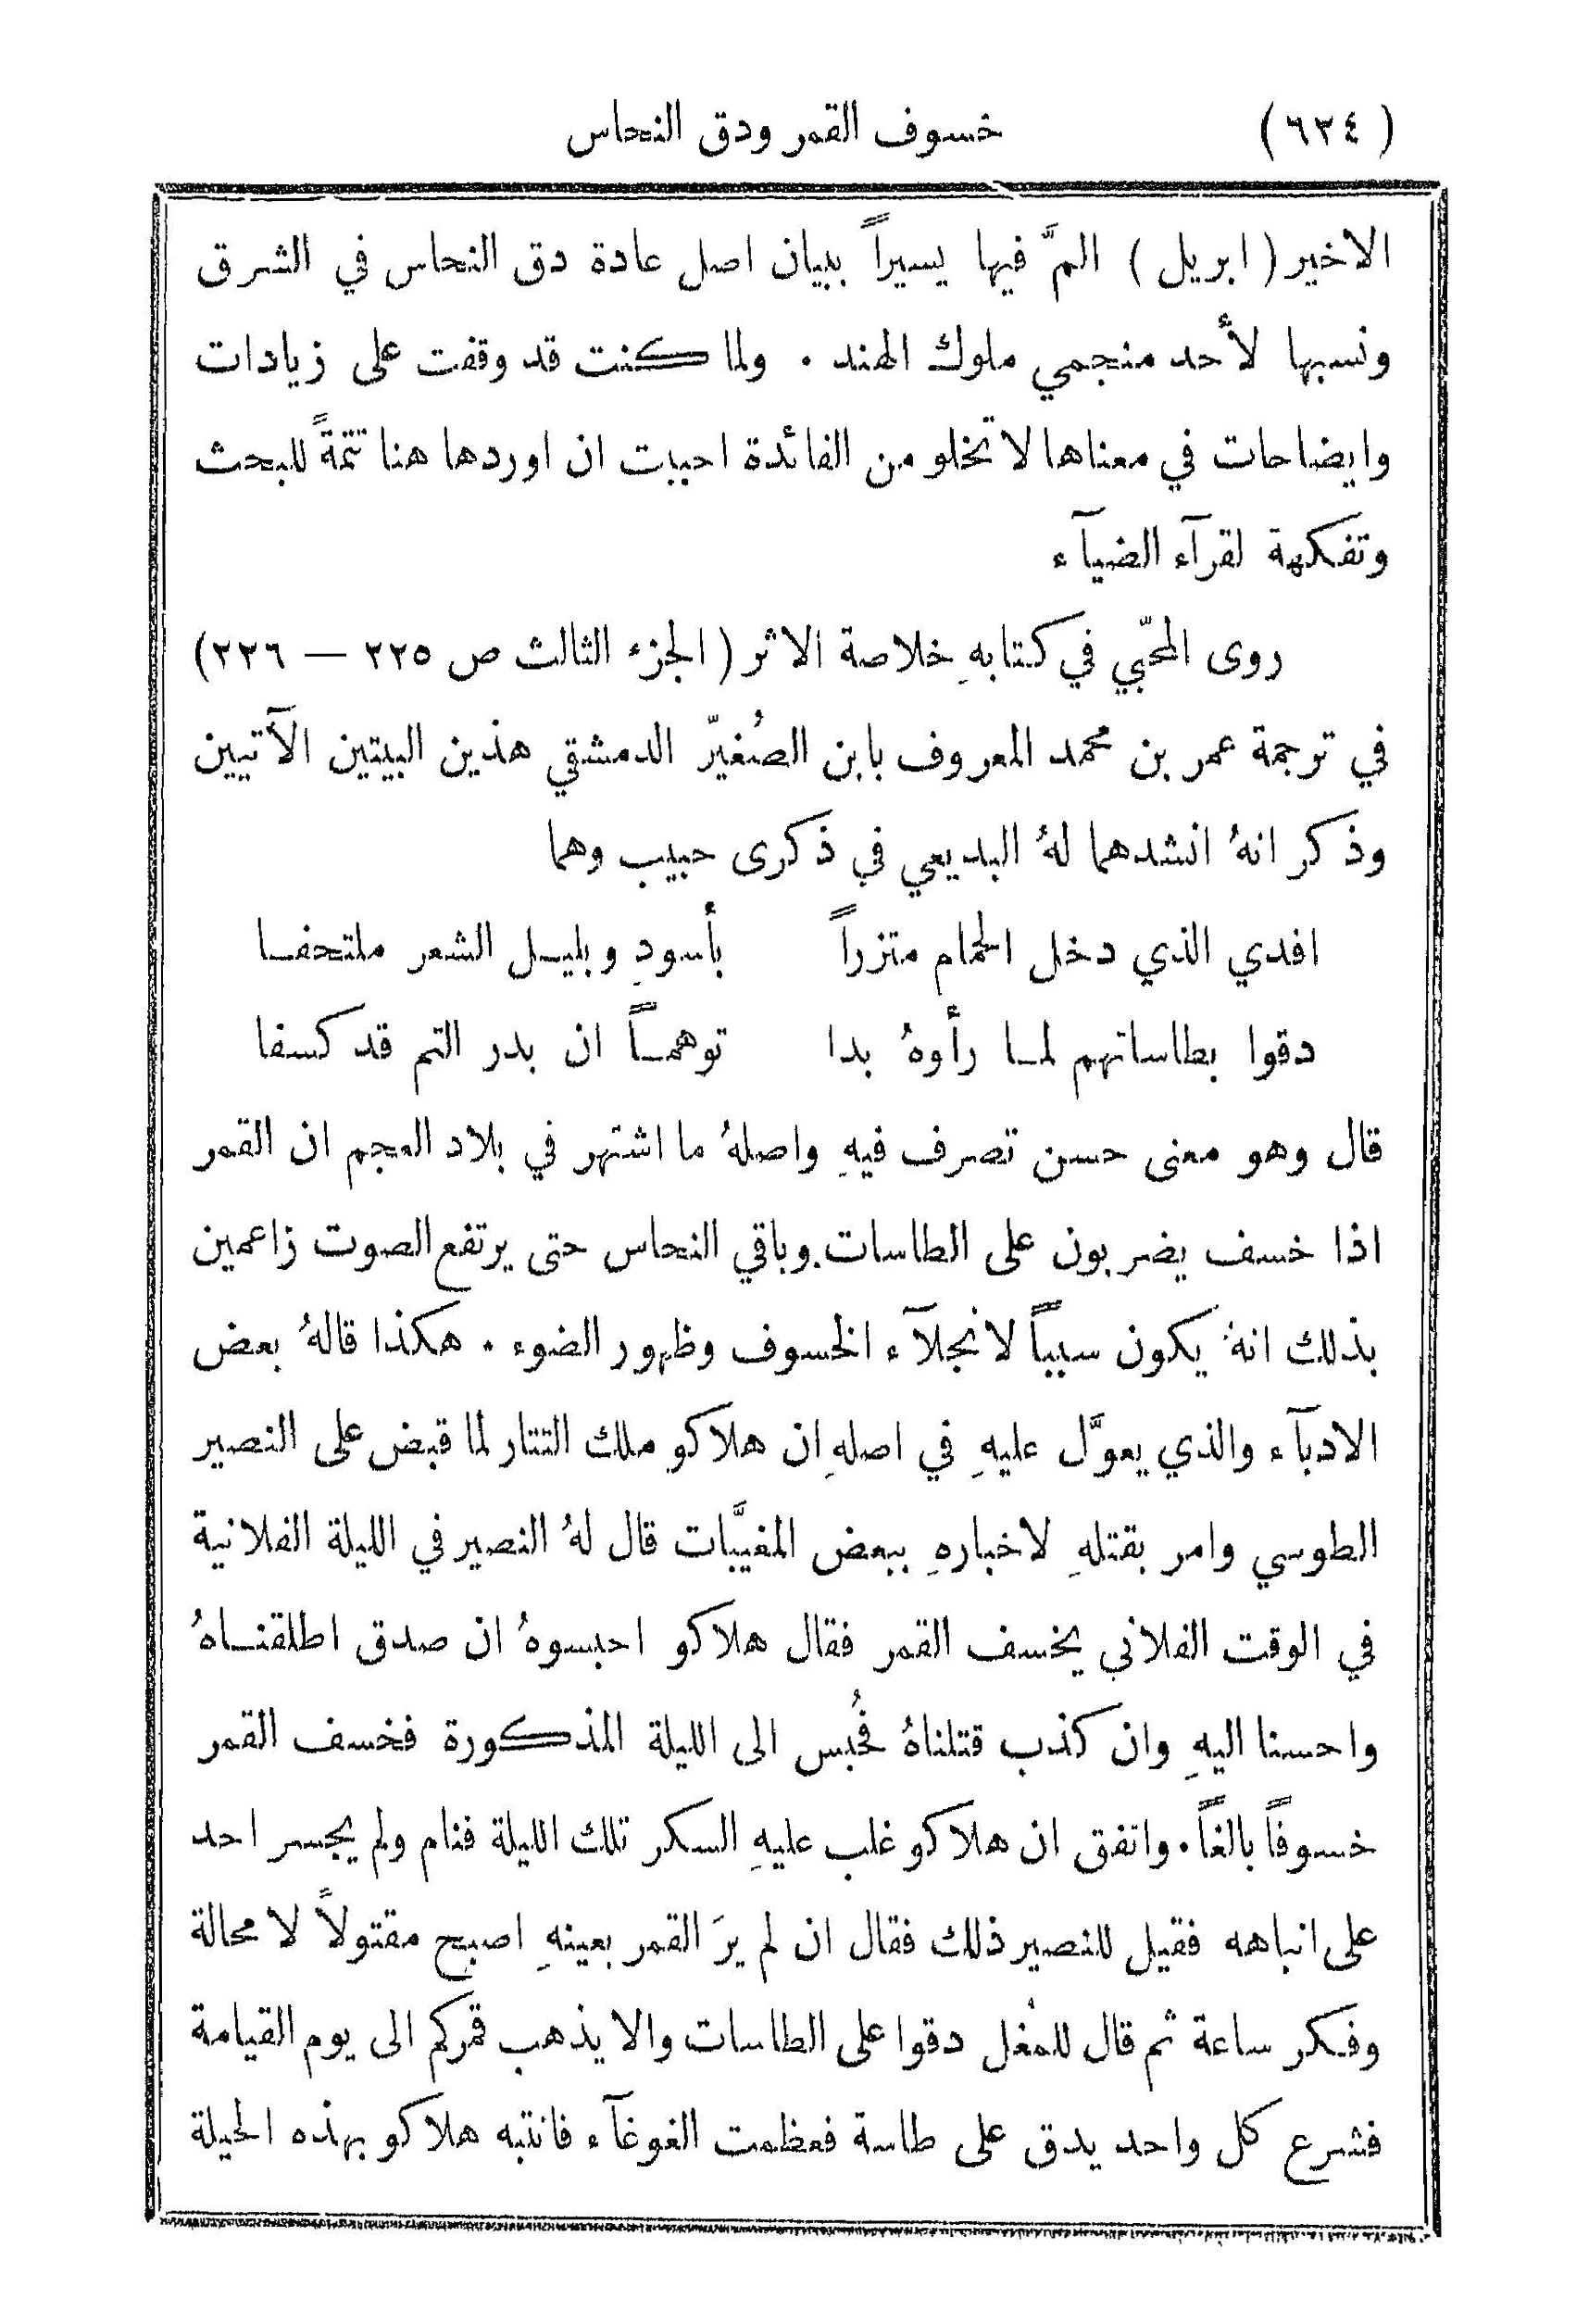 (٦٣٤) خسوف القمر ودق النحاس
الاخير ( ابريل ) المَّ فيها يسيراً ببيان اصل عادة دق النحاس في الشرق
ونسبها لأحد منجمي ملوك الهند . ولما كنت قد وقفت على زيادات
وايضاحات في معناها لا تخلو من الفائدة احببت ان اوردها هنا تتمةً للبحث
وتفكهة لقرآء الضيآء
روى المحبّي في كتابهِ خلاصة الاثر ( الجزء الثالث ص ٢٢٥ — ٢٢٦)
في ترجمة عمر بن محمد المعروف بابن الصُغيّر الدمشقي هذين البيتين الآتيين
وذكر انهُ انشدهما لهُ البديعي في ذكرى حبيب وهما
افدي الذي دخل الحمام متزراً بأسودِ وبليل الشعر ملتحفا
دقوا بطاساتهم لما رأوهُ بدا توهماً ان بدر التم قد كسفا
قال وهو معنى حسن تصرف فيهِ واصلهُ ما اشتهر في بلاد العجم ان القمر
اذا خسف يضربون على الطاسات وباقي النحاس حتى يرتفع الصوت زاعمين
بذلك انهُ يكون سبباً لانجلآء الخسوف وظهور الضوء . هكذا قالهُ بعض
الادبآء والذي يعوَّل عليهِ في اصلهِ ان هلاكو ملك التتار لما قبض على النصير
الطوسي وامر بقتلهِ لاخبارهِ ببعض المغيَّبات قال لهُ النصير في الليلة الفلانية
في الوقت الفلاني يخسف القمر فقال هلاكو احبسوهُ ان صدق اطلقناهُ
واحسنا اليهِ وان كذب قتلناهُ فحُبس الى الليلة المذكورة فخسف القمر
خسوفاً بالغاً . واتفق ان هلاكو غلب عليهِ السكر تلك الليلة فنام ولم يجسر احد
على انباهه فقيل للنصير ذلك فقال ان لم يرَ القمر بعينهِ اصبح مقتولاً لا محالة
وفكر ساعة ثم قال للمُغل دقوا على الطاسات والا يذهب قمركم الى يوم القيامة
فشرع كل واحد يدق على طاسة فعظمت الغوغآء فانتبه هلاكو بهذه الحيلة